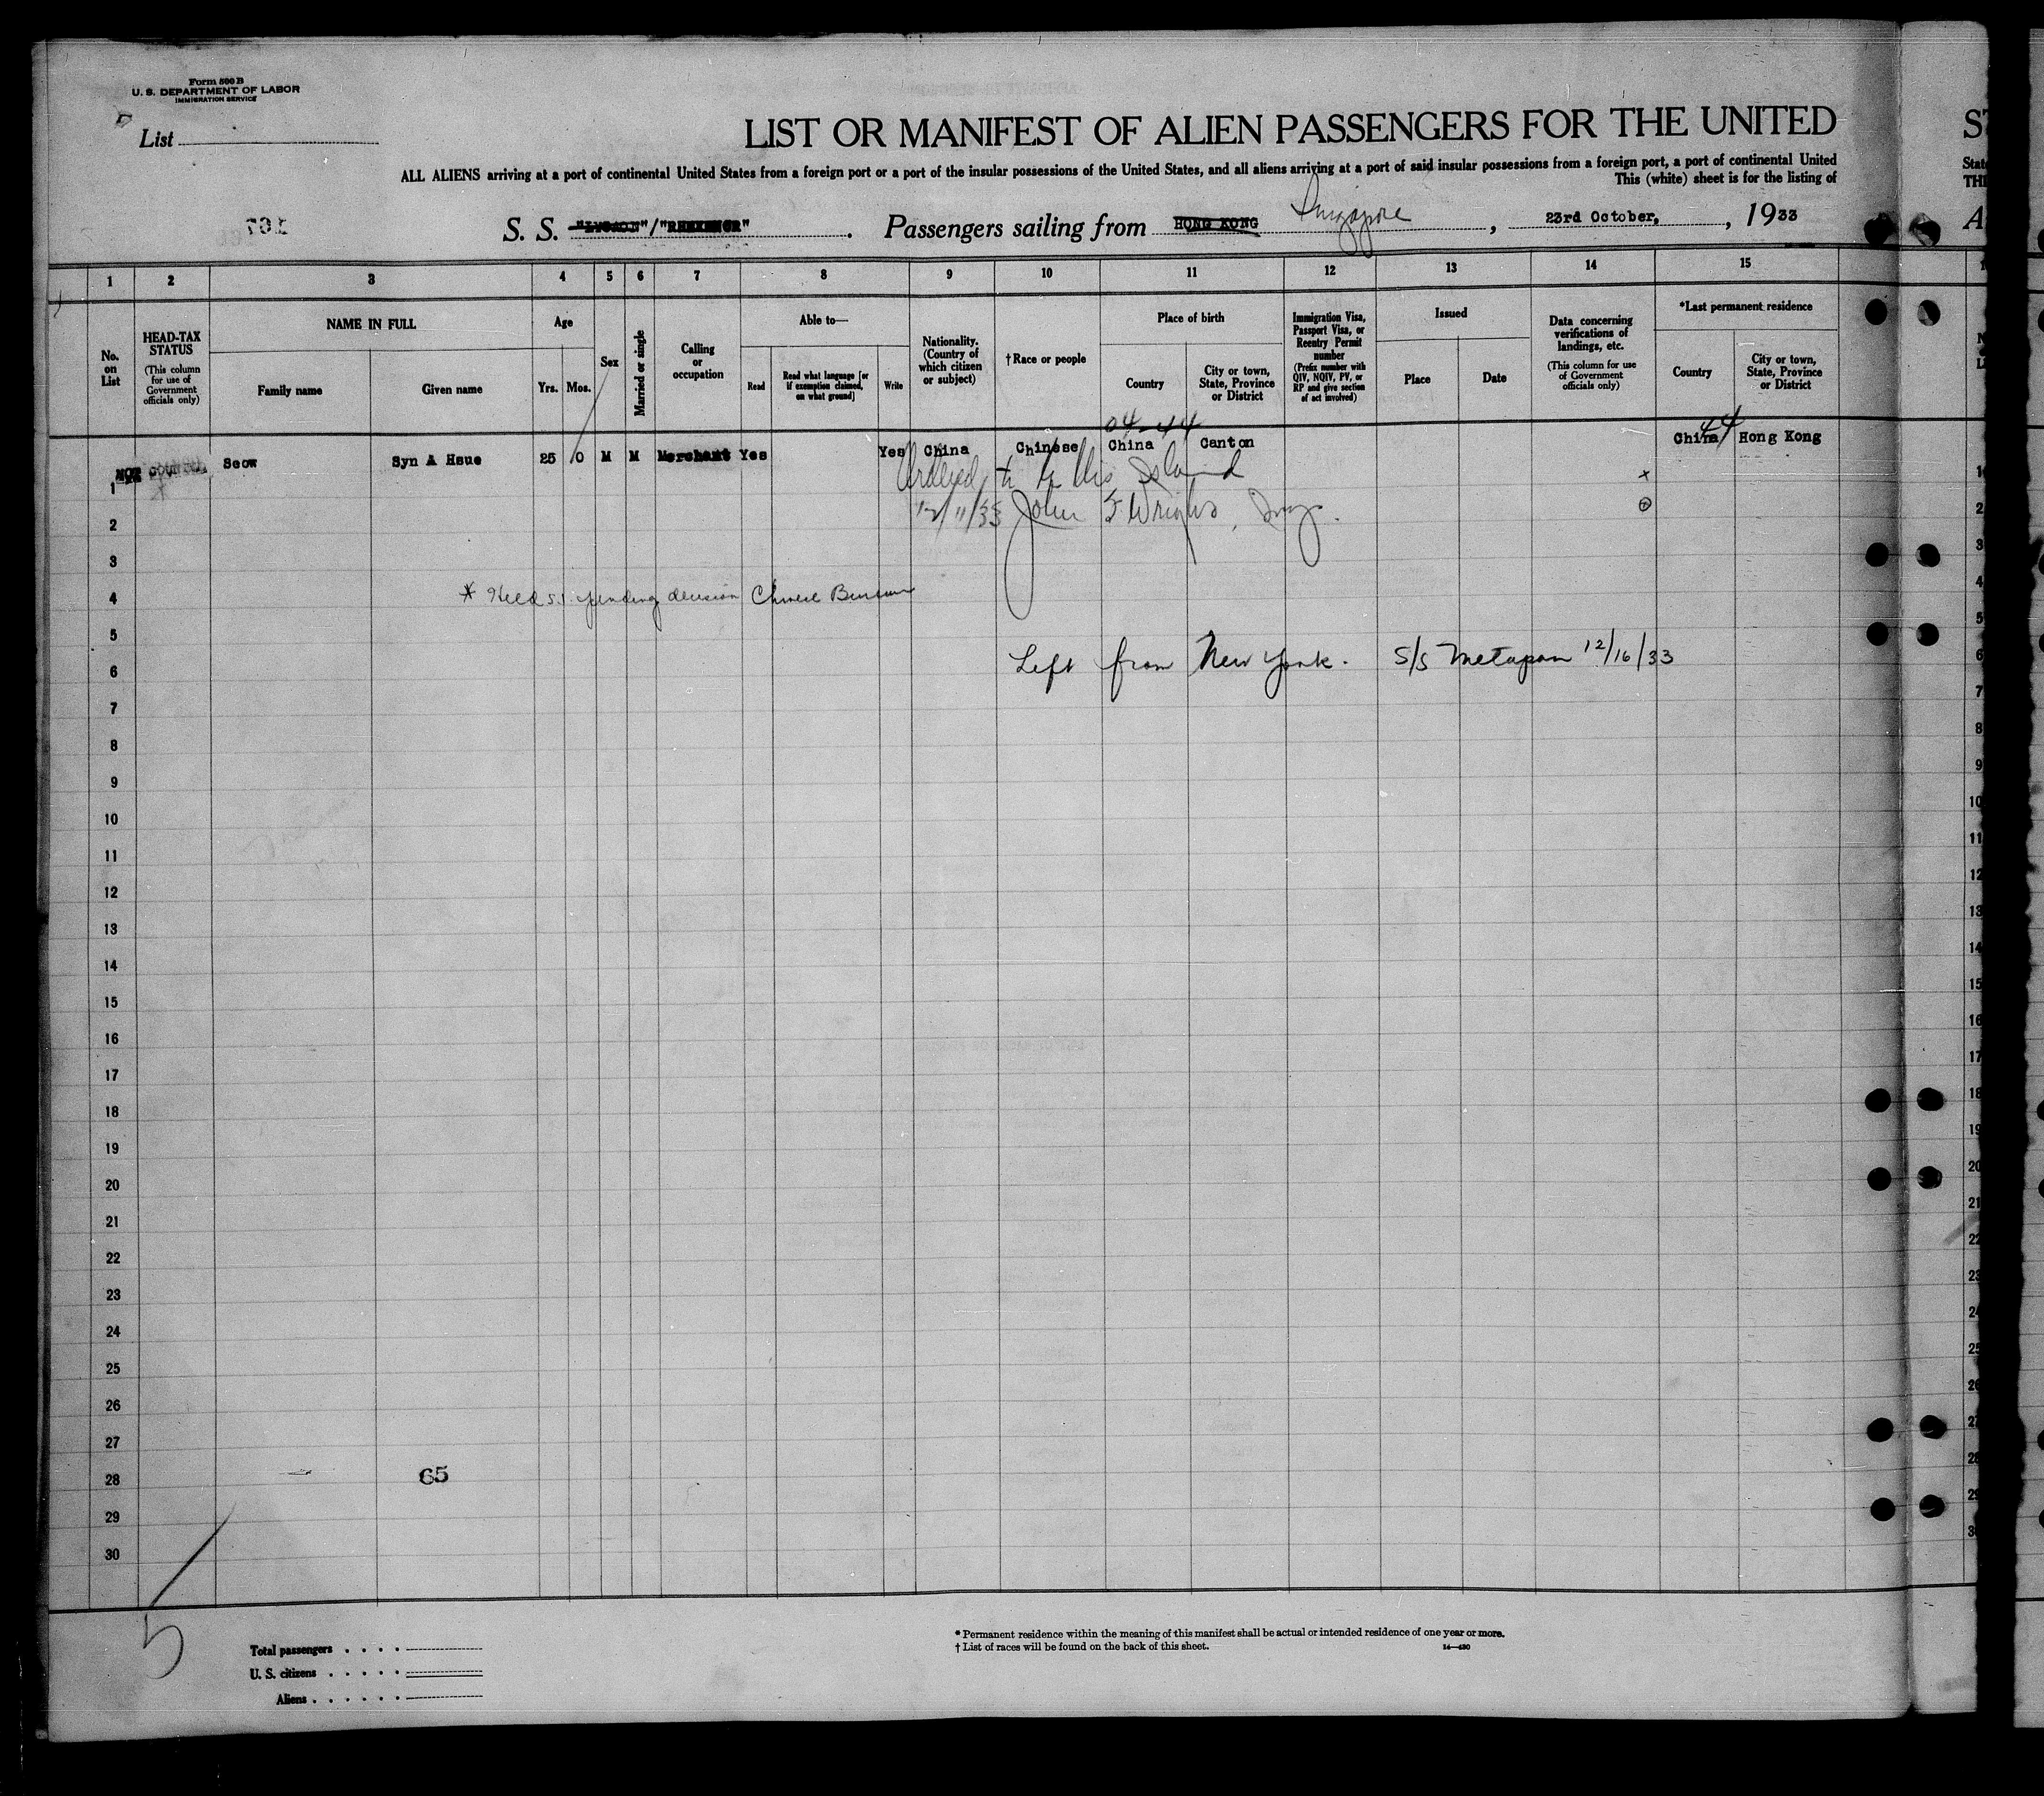 Form 500 B
U. S. DEPARTMENT OF LABOR
IMMIGRATION SERVICE
List
LIST OR MANIFEST OF ALIEN PASSENGERS FOR THE UNITED
ALL ALIENS arriving at a port of continental United States from a foreign port or a port of the insular possessions of the United States, and all aliens arriving at a port of said insular possessions from a foreign port, a port of continental United
This (white) sheet is for the listing of
S. S. "LYCAON"/"RHEXENOR". Passengers sailing from HONG KONG Singapore, 23rd October, , 1933
1 2 3 4 5 6 7 8 9 10 11 12 13 14 15
No. on List
HEAD-TAX STATUS
(This column for use of Government officials only)
NAME IN FULL
Family name
Given name
Age
Yrs. Mos.
Sex
Married or single
Calling or occupation
Able to—
Read
Read what language [or if exemption claimed, on what ground]
Write
Nationality. (Country of which citizen or subject)
† Race or people
Place of birth
Country
City or town, State, Province or District
Immigration Visa, Passport Visa, or Reentry Permit number
(Prefix number with QIV, NQIV, PV, or RP and give section of act involved)
Issued
Place
Date
Data concerning verifications of landings, etc.
(This column for use of Government officials only)
*Last permanent residence
Country
City or town, State, Province or District
04-44
44
NOT COUNTED Seow Syn A Hsue 25 0 M M Merchant Yes Yes China Chinese China Canton China Hong Kong
1 x
Ordered to Ellis Island
2
12/11/33 John F Wright, Insp.
3
4 * Held s.i. pending decision Chinese Bureau
5
6 Left from New York. S/S Metapan 12/16/33
7
8
9
10
11
12
13
14
15
16
17
18
19
20
21
22
23
24
25
26
27
28 65
29
30
5
Total passengers
U. S. citizens
Aliens
* Permanent residence within the meaning of this manifest shall be actual or intended residence of one year or more.
† List of races will be found on the back of this sheet. 14—430